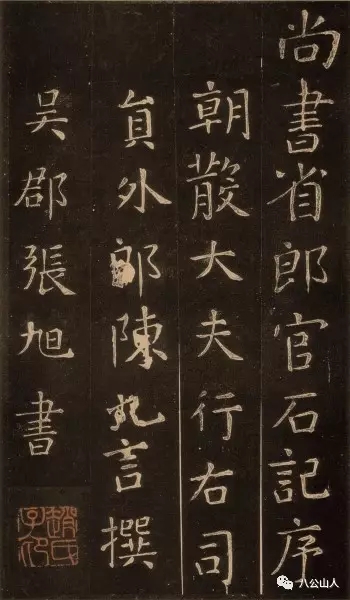 尚書省郎官石記序
朝散大夫行右司
貟外郎陳九言撰
吴郡張旭書
趙氏子印
八公山人